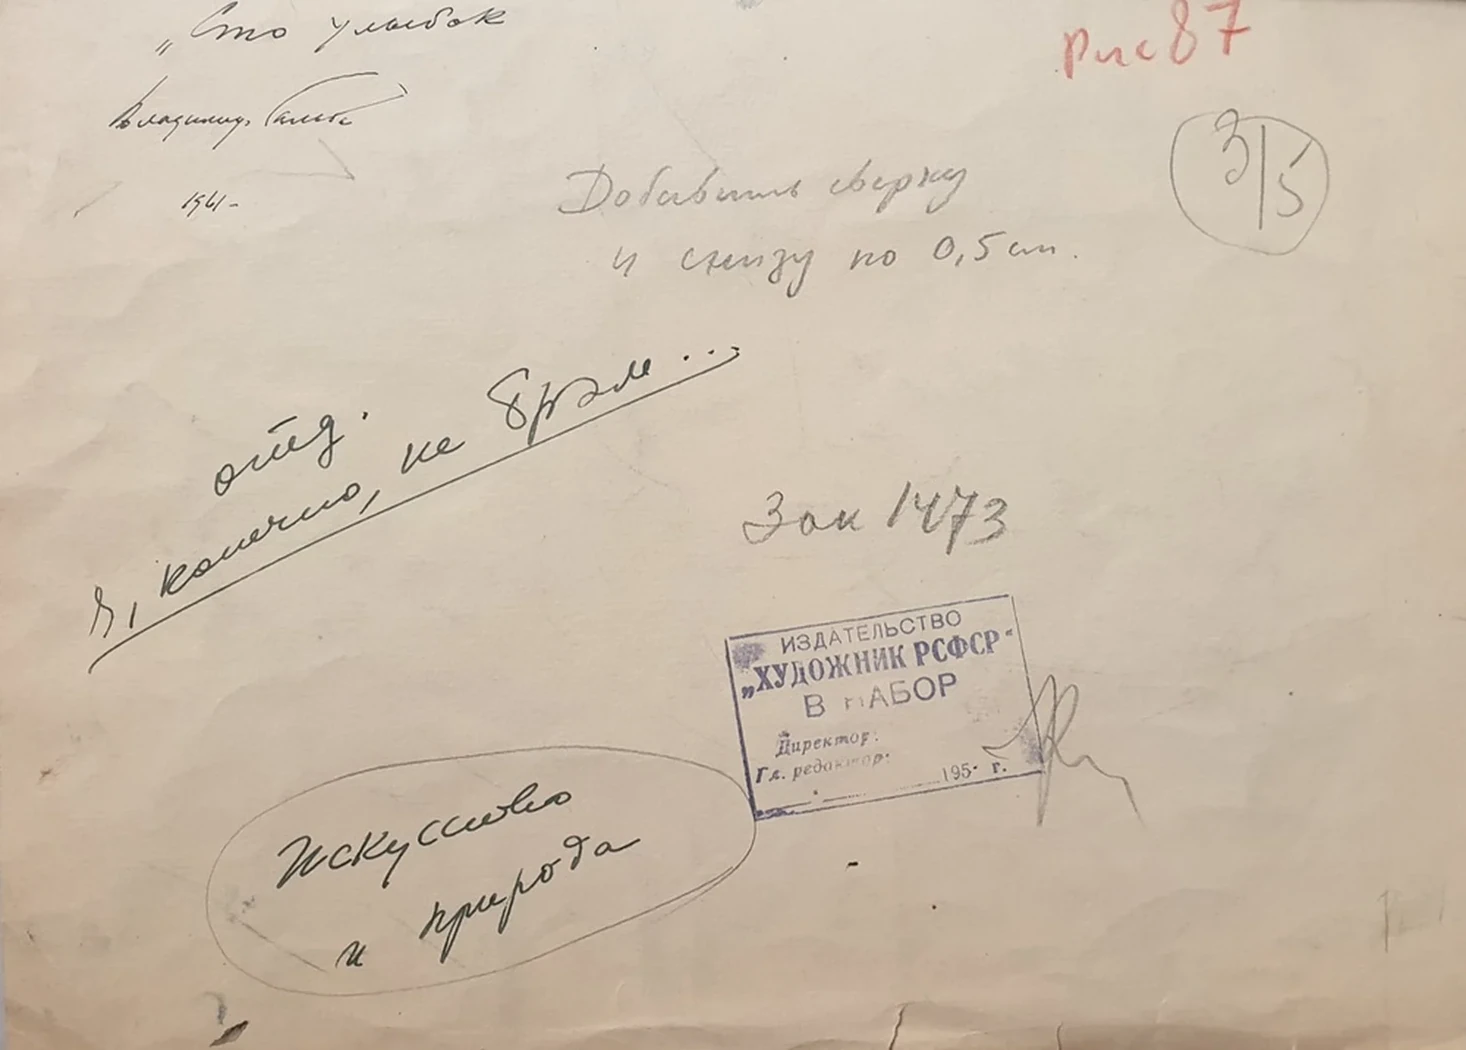 „Сто улыбок
Владимир Гальба
1961-
Рис 87
3/5
Добавить сверху
и снизу по 0,5 см.
отд.
Я, конечно, не Брэм...
Зак 1473
ИЗДАТЕЛЬСТВО
„ХУДОЖНИК РСФСР“
В НАБОР
Директор:
Гл. редактор:
195 г.
Искусство
и природа